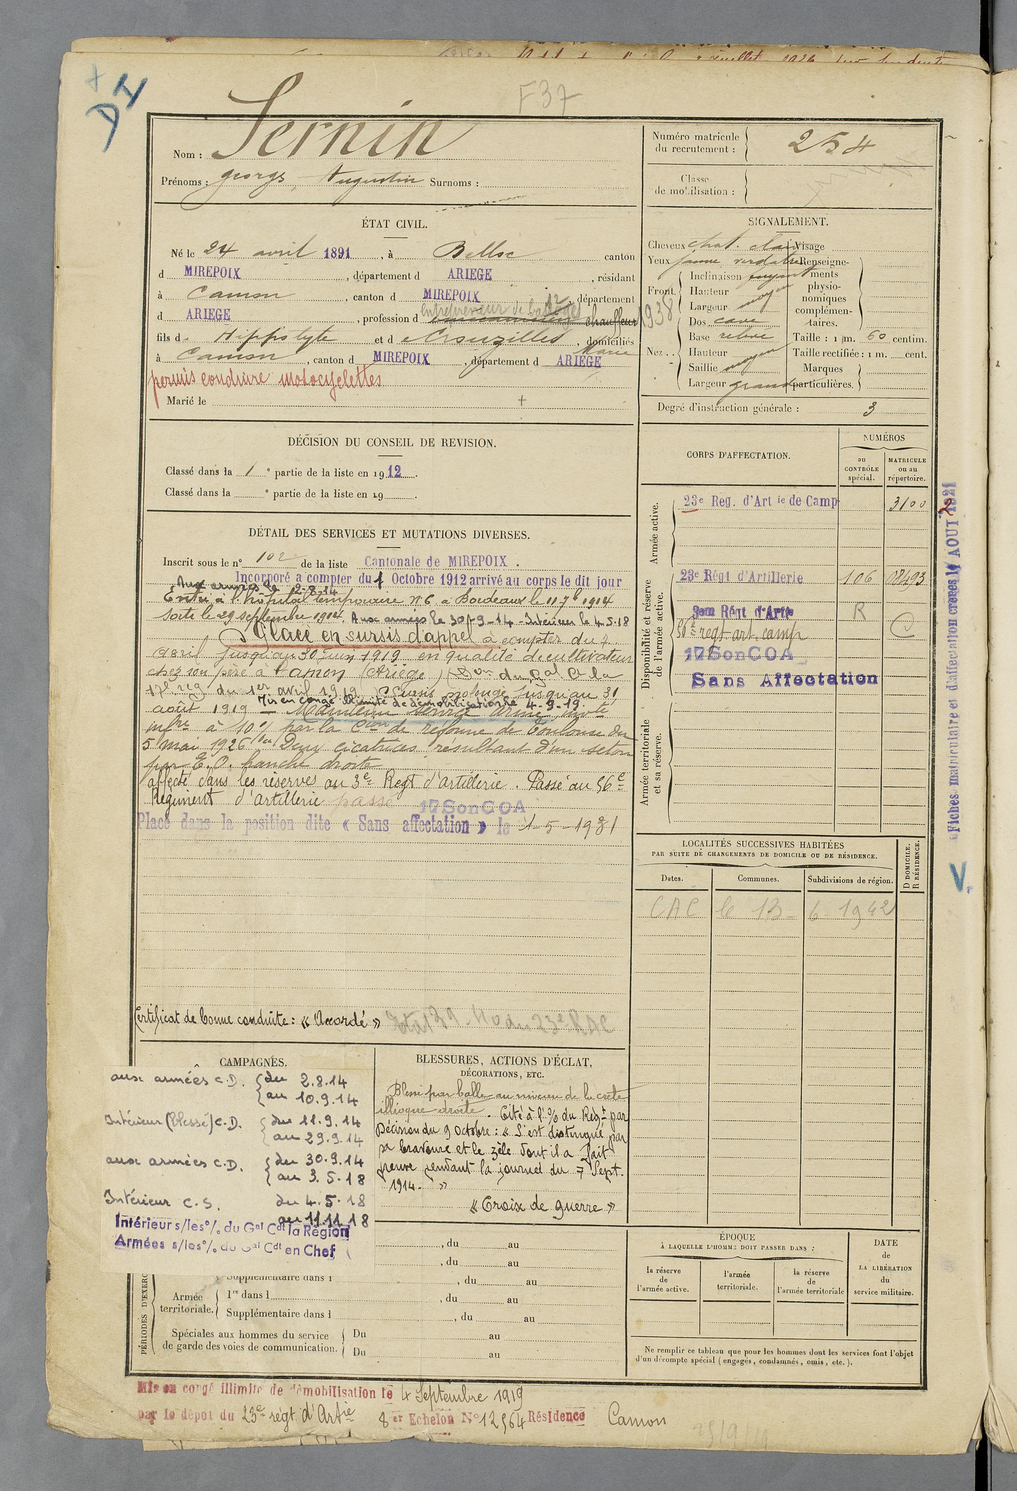 DI
F37
Nom : Sernin
Prénoms : georges, Augustin Surnoms :
Numéro matricule du recrutement : 254
Classe de mobilisation :
ÉTAT CIVIL.
Né le 24 avril 1891, à Belloc canton
d MIREPOIX, département d ARIEGE, résidant
à Camon, canton d MIREPOIX, département
entrepreneur de battage
d ARIEGE, profession d chauffeur
1938
fils d' Hippolyte et d Crouzilles Marie, domiciliés
à Camon, canton d MIREPOIX, département d ARIEGE
permis conduire motocyclettes
Marié le
SIGNALEMENT.
Cheveux chat. clair
Yeux jaune verdatre
Front Inclinaison fuyant
Hauteur moyen
Largeur moyen
Nez Dos cave
Base relevé
Hauteur moyen
Saillie moyen
Largeur grand
Visage
Renseignements physionomiques complémentaires.
Taille : 1 m. 60 centim.
Taille rectifiée : 1 m. cent.
Marques particulières.
Degré d'instruction générale : 3
DÉCISION DU CONSEIL DE REVISION.
Classé dans la 1e partie de la liste en 1912.
Classé dans la e partie de la liste en 19
DÉTAIL DES SERVICES ET MUTATIONS DIVERSES.
Inscrit sous le n° 102 de la liste Cantonale de MIREPOIX.
Incorporé a compter du 1 Octobre 1912 arrivé au corps le dit jour
Aux armées le 2-8-14
Entré à l'hôpital temporaire N°6 à Bordeaux le 11 7bre 1914
Sorti le 29 septembre 1914. Aux armées le 30-9-14 - Intérieur le 4.5.18
Placé en sursis d'appel à compter du 9
avril jusqu'au 30 juin 1919 en qualité de cultivateur
chez son père à Camon (Ariège) Don du Gal Ct la
17e reg. du 1er avril 1919. Sursis prolongé jusqu'au 31
août 1919 — Mis en congé illimité de démobilisation le 4-9-19.
Maintenu service armé, invté
mfre à 10% par la Cion de réforme de Toulouse du
5 mai 1926 Deux cicatrices résultant d'un seton
par E.O. hanche droite
affecté dans les réserves au 3e Regt d'Artillerie. Passé au 56e
Regiment d'artillerie passé 17SonCOA
Placé dans la position dite « Sans affectation » le 1-5-1931
Certificat de bonne conduite : « Accordé » Etat du 23e RAC
CORPS D'AFFECTATION.
NUMÉROS
au CONTRÔLE spécial.
MATRICULE ou au répertoire.
Armée active.
23e Reg. d'Artie de Camp 3100
Disponibilité et réserve de l'armée active.
23e Régt d'Artillerie 106 02493
3em Régt d'Artie R
56e regt art. camp C
17SonCOA
Sans Affectation
Armée territoriale et sa réserve.
Fiches matriculaire et d'affectation créées le 17 AOUT 1921
V.
LOCALITÉS SUCCESSIVES HABITÉES
PAR SUITE DE CHANGEMENTS DE DOMICILE OU DE RÉSIDENCE.
Dates. Communes. Subdivisions de région. D DOMICILE. R RÉSIDENCE.
CAC le 13-6-1942
CAMPAGNES.
aux armées C.D. { du 2.8.14
au 10.9.14
Intérieur (Blessé) C.D. { du 11.9.14
au 29.9.14
aux armées C.D. { du 30.9.14
au 3.5.18
Intérieur C.S. du 4.5.18
au 11.11.18
Intérieur s/les o/. du Gal Cdt la Région
Armées s/les o/. du Gal Cdt en Chef
BLESSURES, ACTIONS D'ÉCLAT,
DÉCORATIONS, ETC.
Blessé par balle au niveau de la crète
illiaque droite. Cité à l'o/ du Régt par
Décision du 9 octobre : « S'est distingué par
sa bravoure et le zèle dont il a fait
preuve pendant la journée du 7 Sept.
1914. »
« Croix de guerre »
PÉRIODES D'EXERC
, du au
, du au
Supplémentaire dans l , du au
Armée territoriale. 1re dans l , du au
Supplémentaire dans l , du au
Spéciales aux hommes du service de garde des voies de communication. Du au
Du au
ÉPOQUE
À LAQUELLE L'HOMME DOIT PASSER DANS :
la réserve de l'armée active.
l'armée territoriale.
la réserve de l'armée territoriale
DATE de LA LIBÉRATION du service militaire.
Ne remplir ce tableau que pour les hommes dont les services font l'objet
d'un décompte spécial (engagés, condamnés, omis, etc.).
Mis en congé illimité de démobilisation le 4 Septembre 1919
par le dépôt du 23e regt d'Artie 8er Echelon No 12564 Résidence Camon